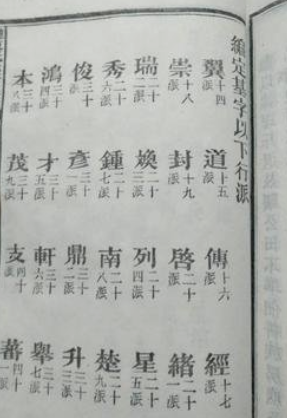 編定基字以下行派
翼十四派 道十五派 傳十六派 經十七派
崇十八派 封十九派 啓二十派 緒二十一派
瑞二十二派 煥二十三派 列二十四派 星二十五派
秀二十六派 鍾二十七派 南二十八派 楚二十九派
俊三十派 彥三十一派 鼎三十二派 升三十三派
鴻三十四派 才三十五派 軒三十六派 舉三十七派
本三十八派 茂三十九派 支四十派 蕃四十一派